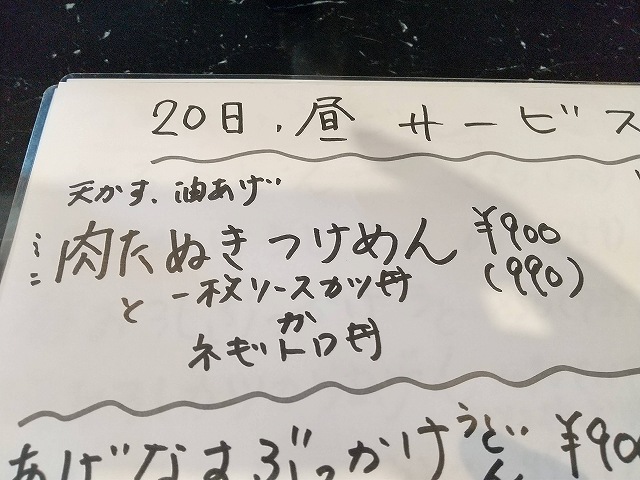 20日、昼 サービス
天かす、油あげ
ミニ 肉たぬきつけめん ¥900
(990)
と 一枚ソースカツ丼
か
ネギトロ丼
あげなすぶっかけうどん ¥900